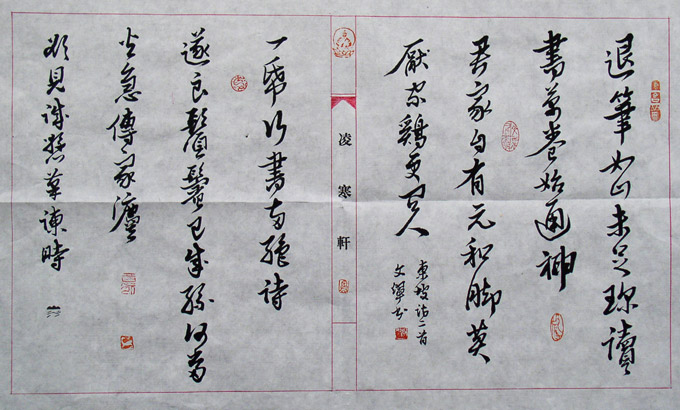 退筆如山未足珍讀
書萬卷始通神
君家自有元和脚莫
厭家鷄更問人
東坡詩二首
文
凌寒軒
一帋行書兩絕詩
遂良鬚鬢已成絲何當
火急傳家灋
欲見誠懸筆諫時